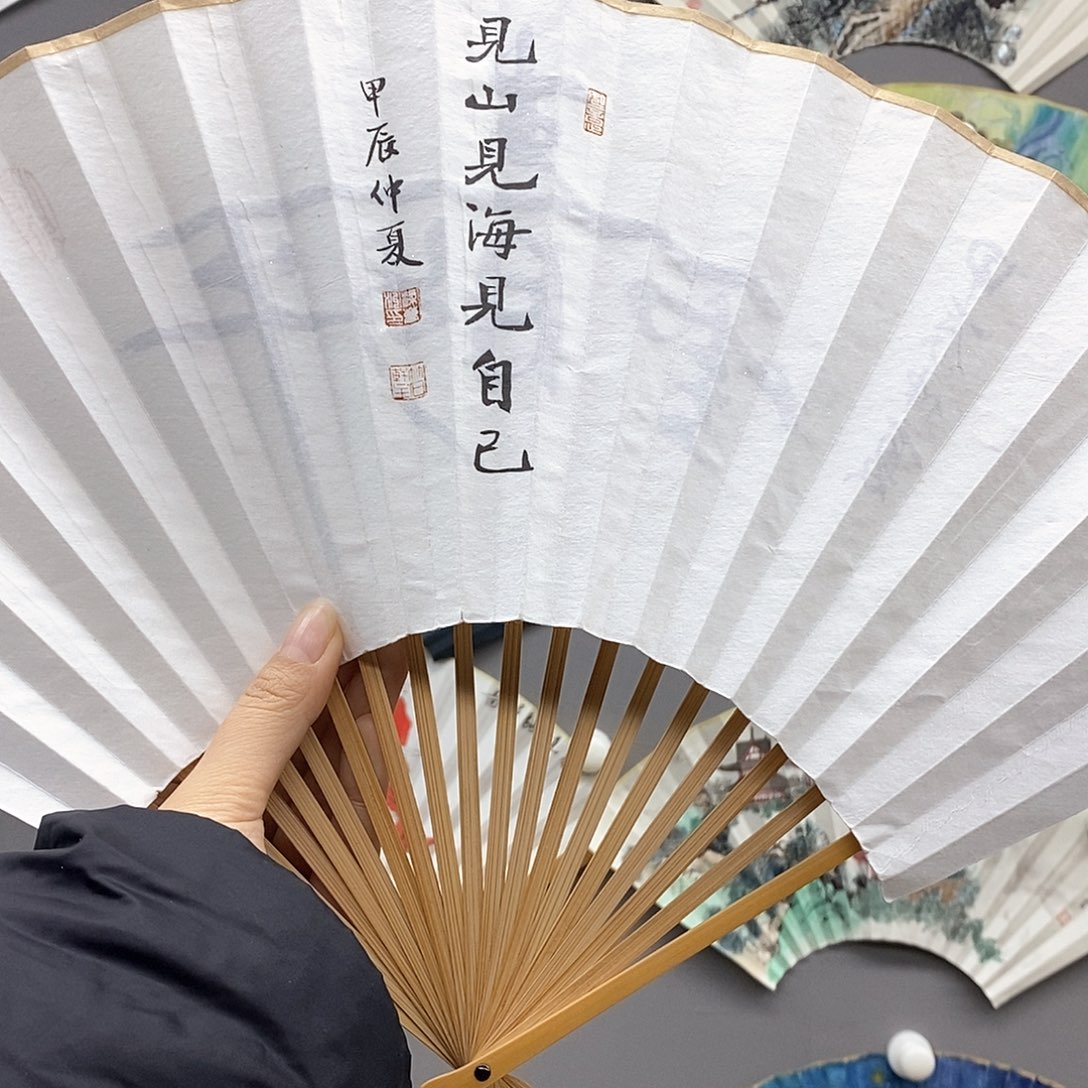 見山見海見自己
甲辰仲夏